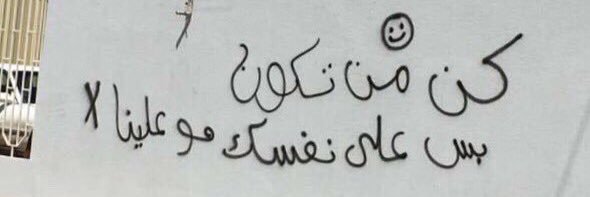 كن من تكون
بس على نفسك مو علينا x